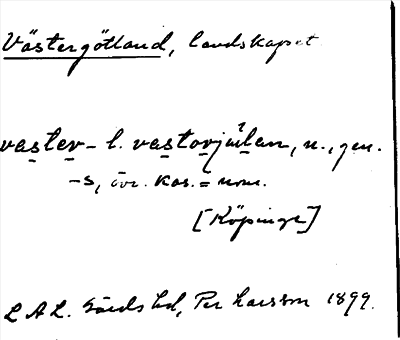 Västergötland, landskapet
vaster- l. vastorjúlan, n., gen.
-s, övr. kas. = nom.
[Köpinge]
L A L. Gärds hd, Per Larsson 1899.